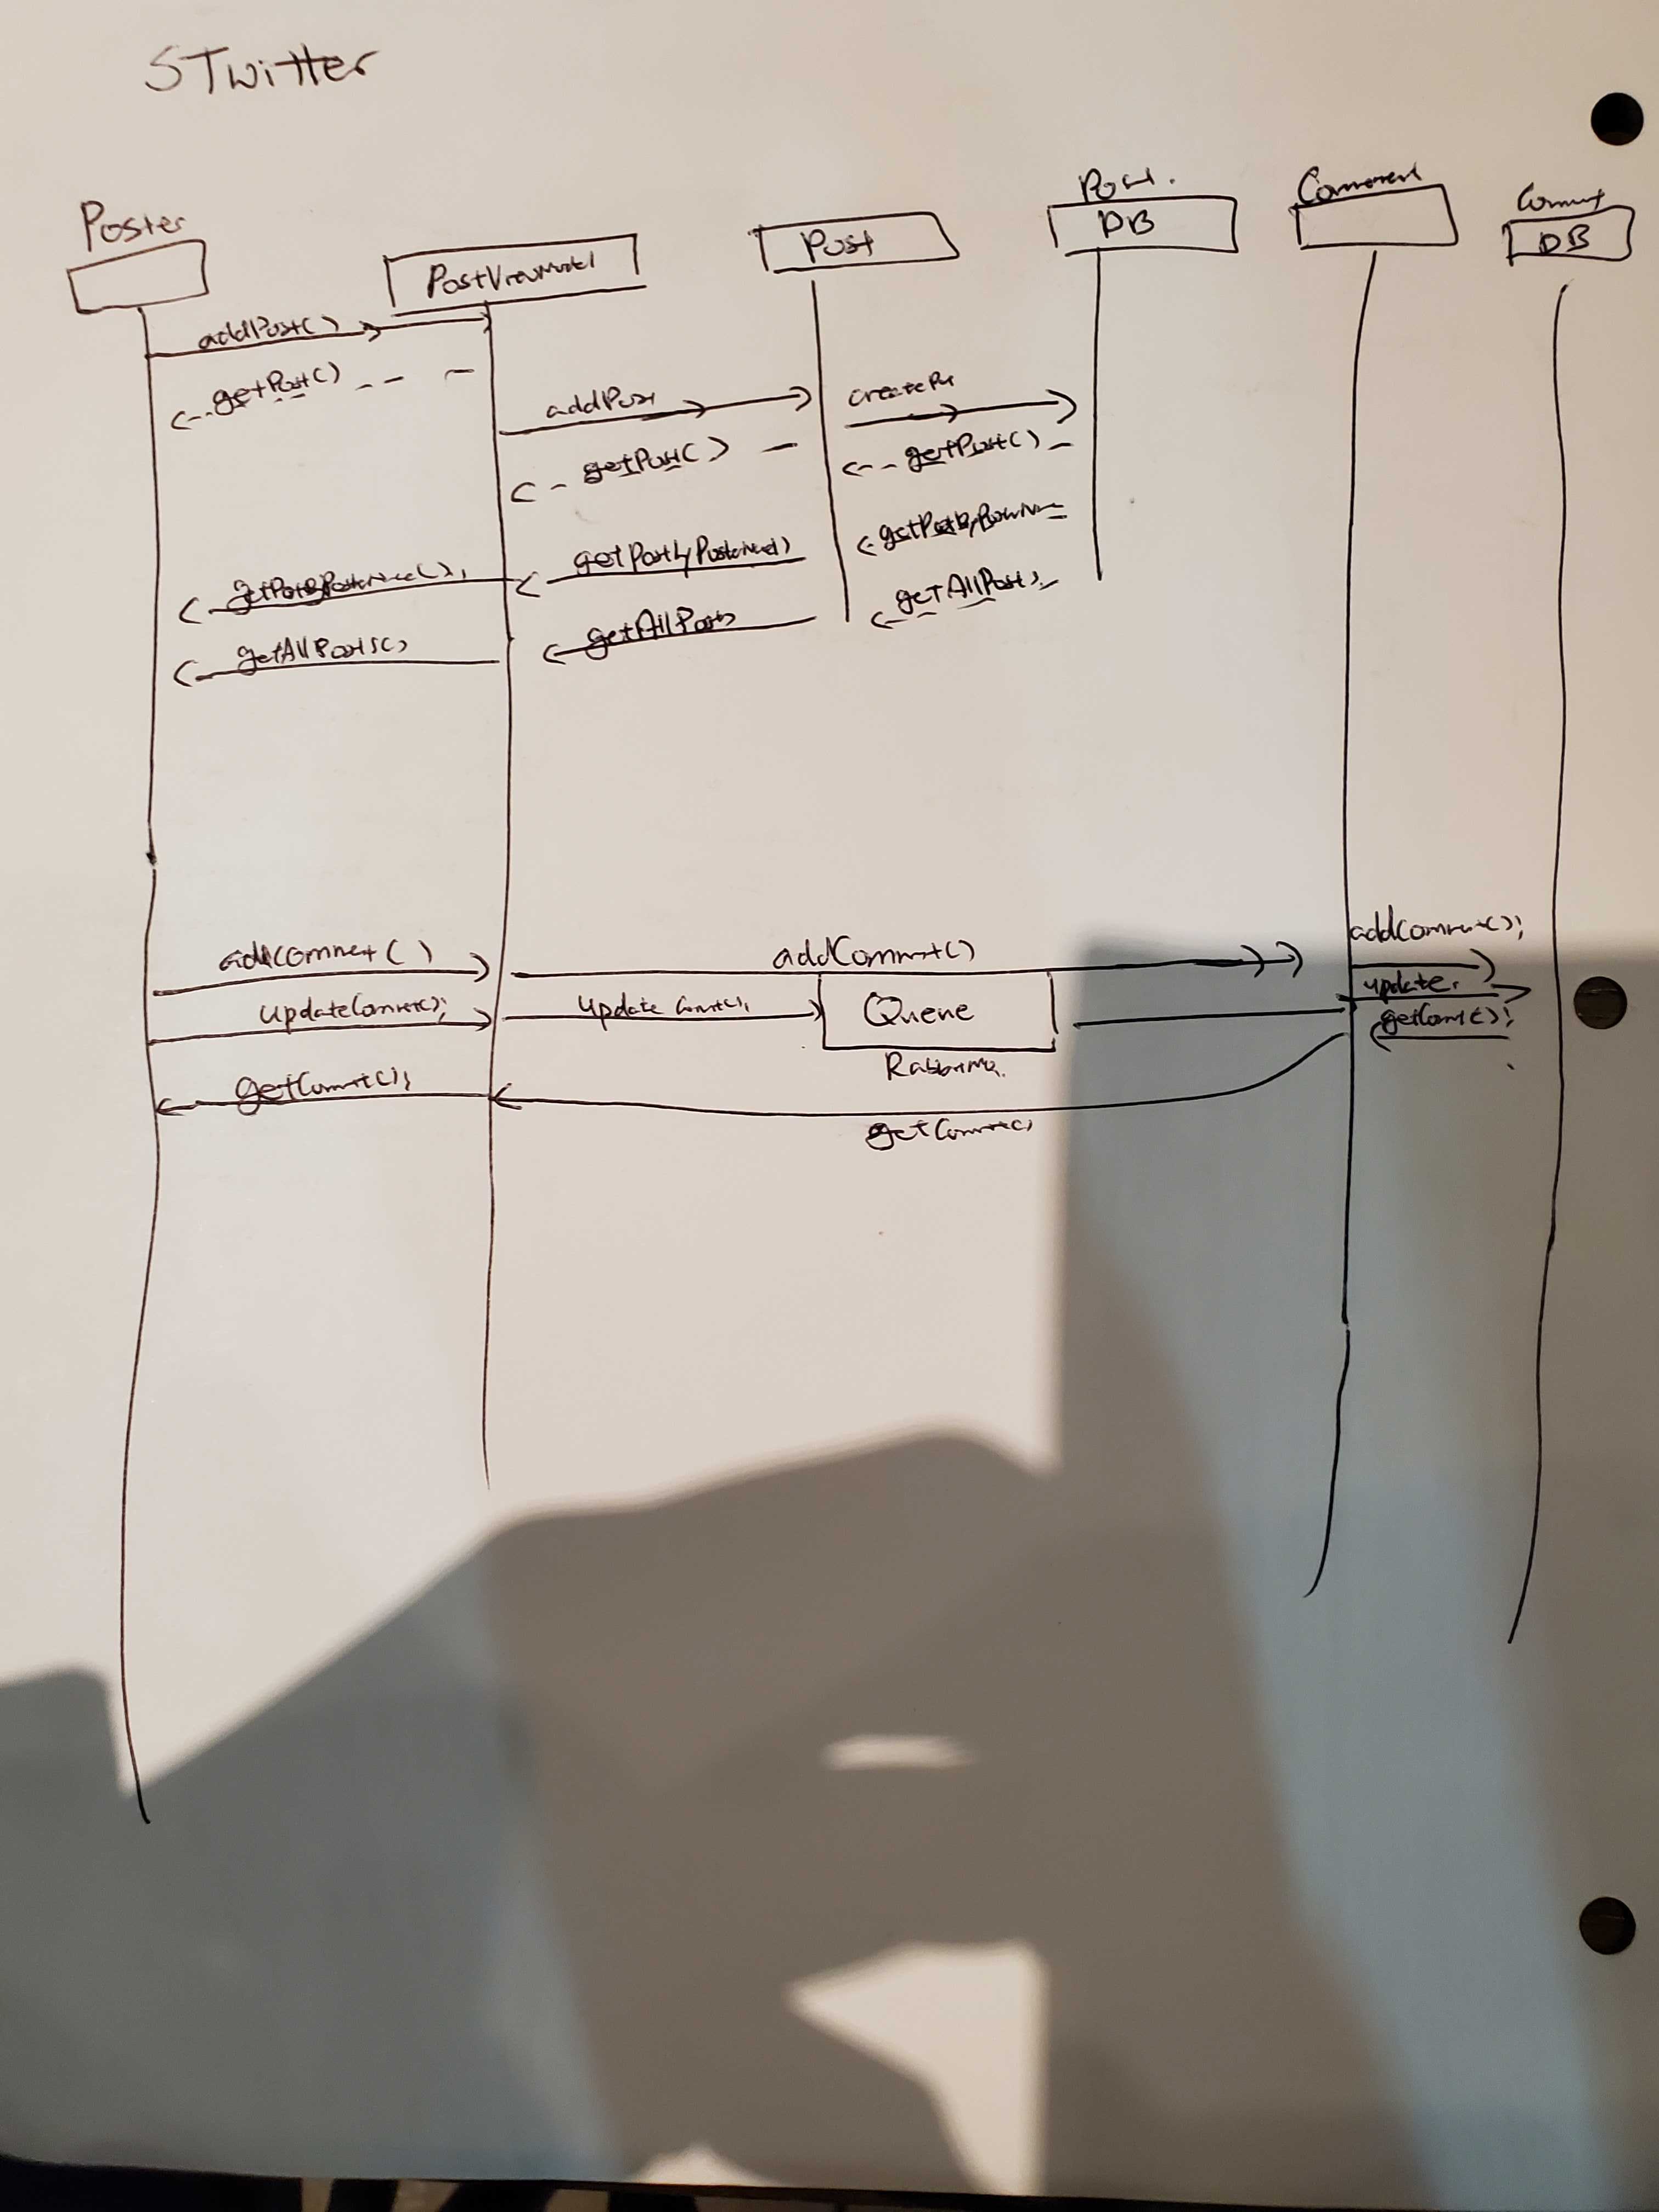 STwitter
Poster
PostViewModel
Post
Post.
DB
Comment
Commt
DB
addPost()
getPost()
addPost
createPo
getPost()
getPost()
getPostByPosterName()
getPostByPosterName();
getAllPosts
getAllPosts
getAllPosts()
addComment()
addCommet()
addComment();
updateComment();
update Commt();
Queue
update.
getCommt();
RabbitMQ.
getCommt();
getCommt()